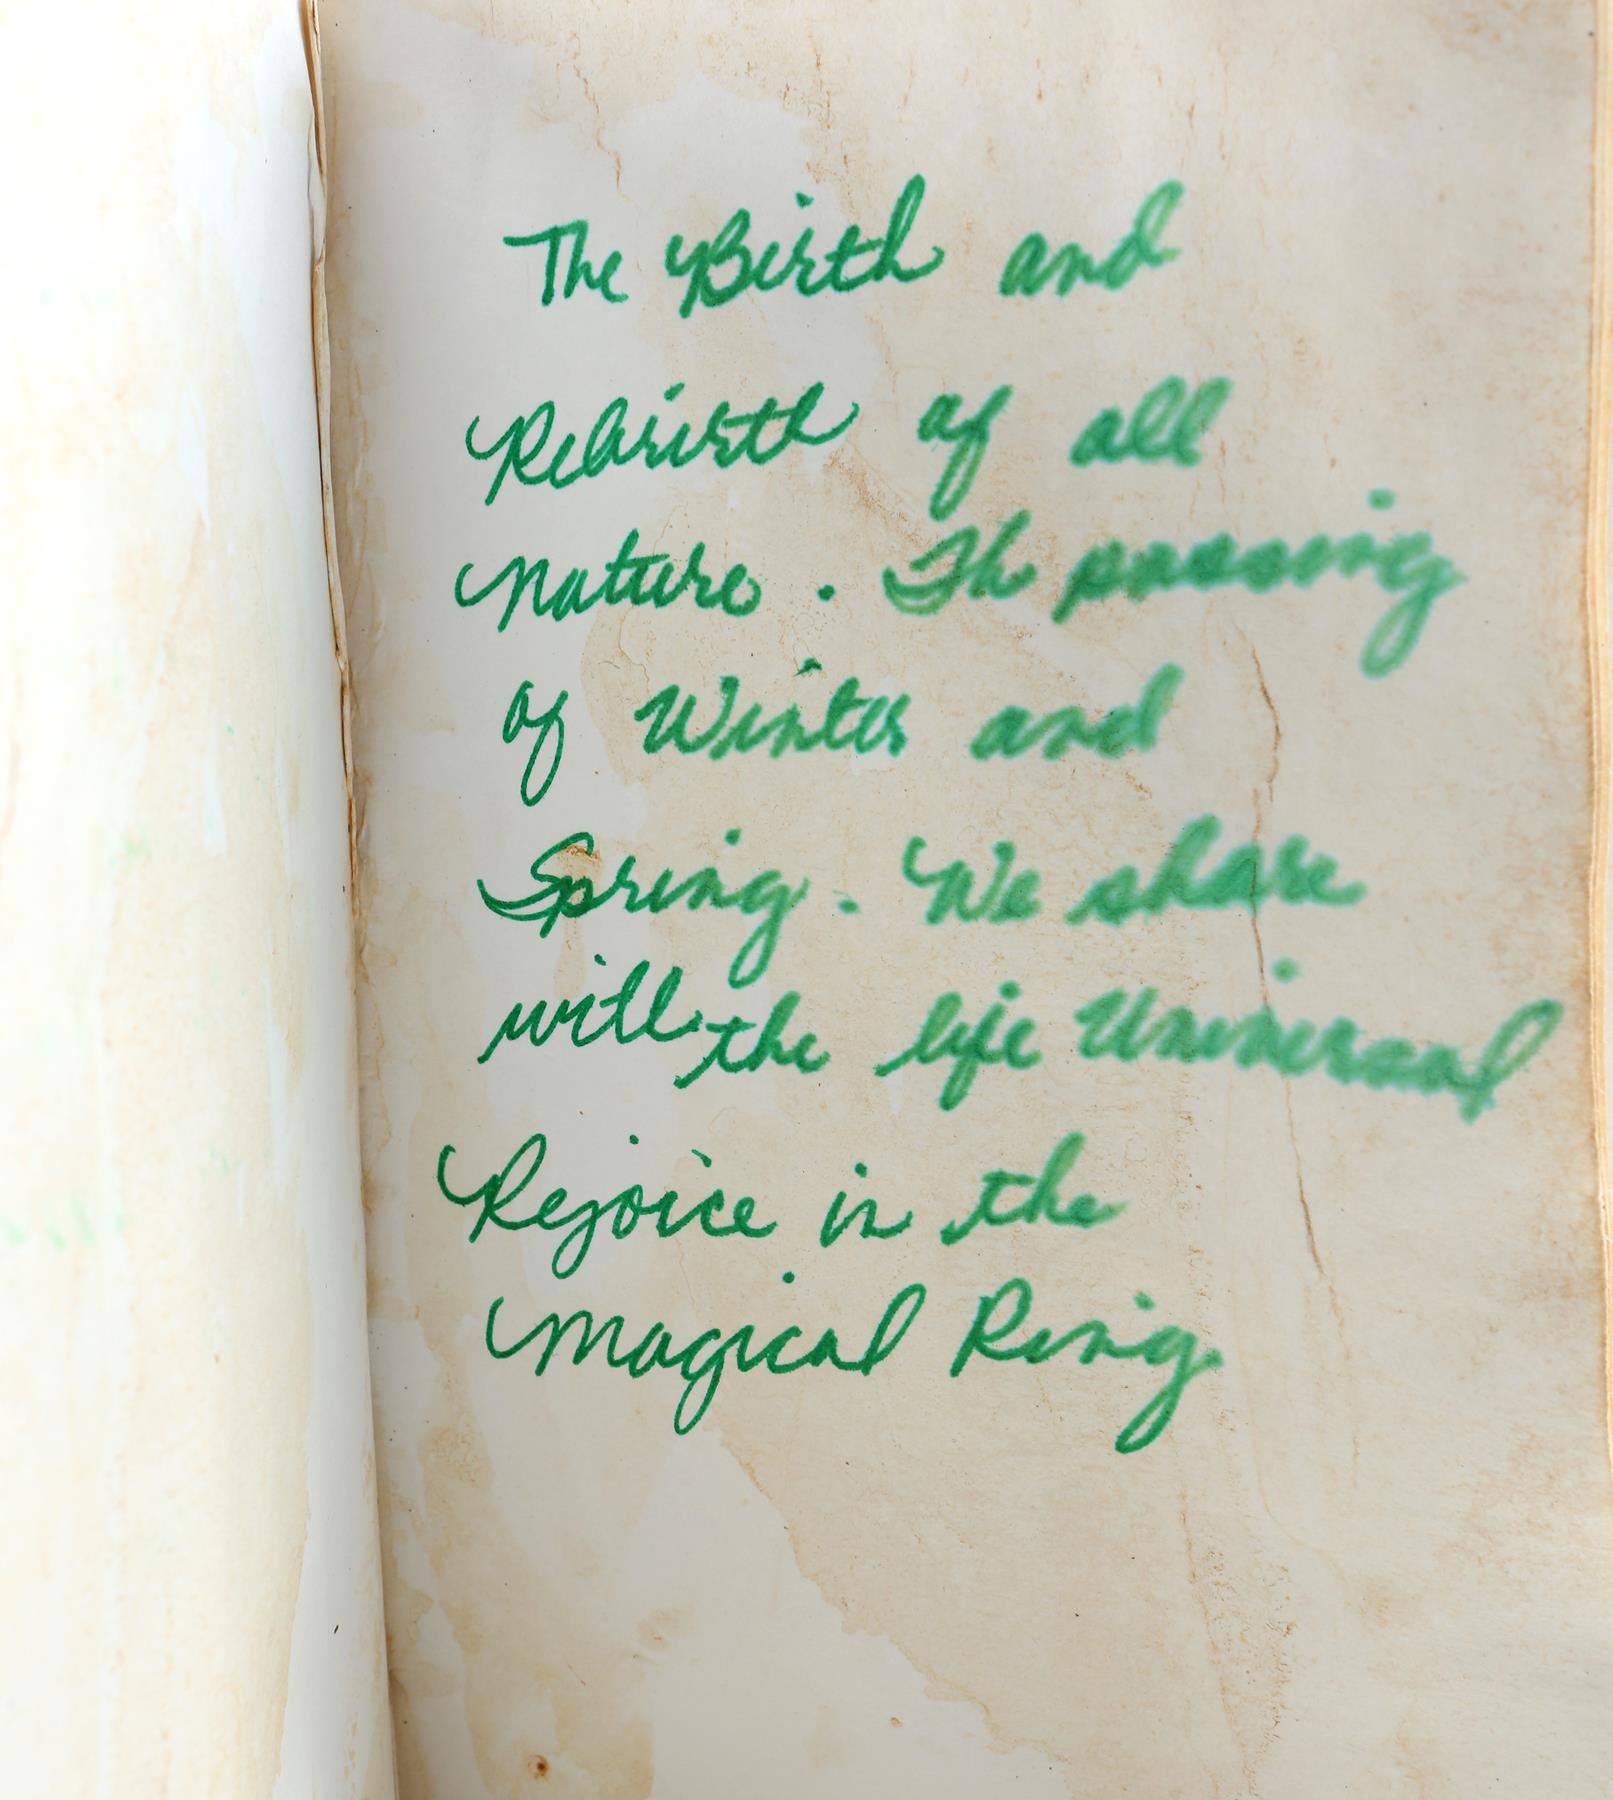 The Birth and
Rebirth of all
Nature. Th passing
of Winter and
Spring. We share
will the life Universal
Rejoice in the
Magical Ring